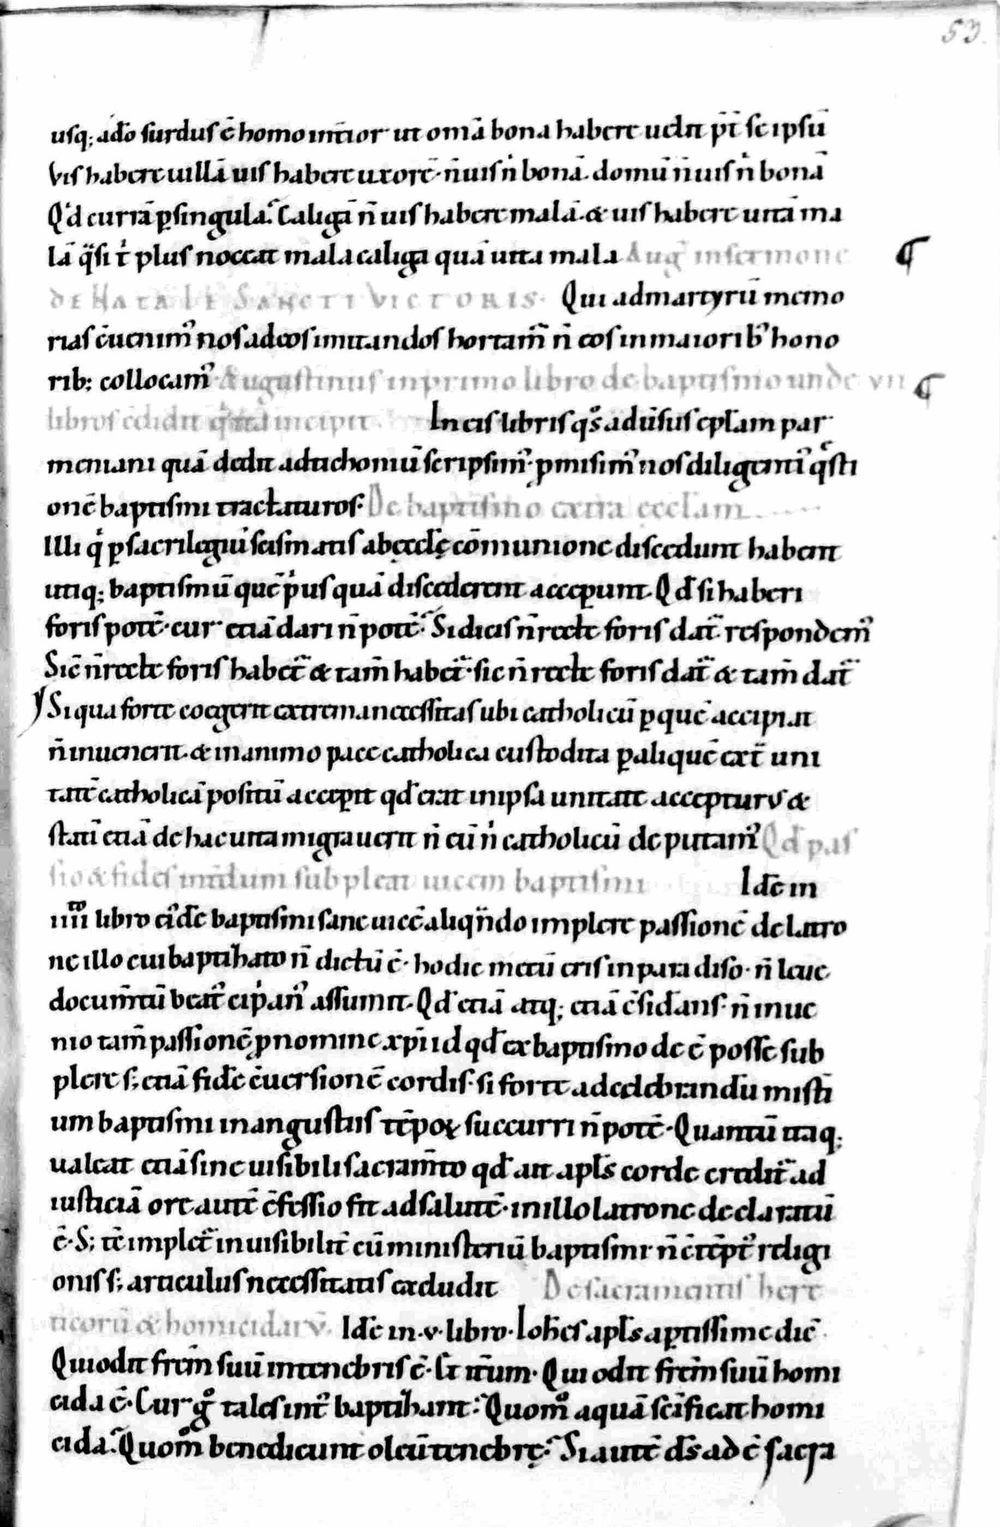 53.
usq; adō surdus ē homo int̄ior ut om̄ia bona habere uelit p̄t̄ se ipsū
Vis habere uillā uis habere uxorē· n̄ uis n̄ bonā· domū n̄ uis n̄ bonā
Qͥd currā ꝑ singula. Caligā n̄ uis habere malā· & uis habere uitā ma
lā qͣsi t̄ plus noceat mala caliga quā uita mala Auḡ in sermone
de natale sancti Victoris· Qui ad martyrū memo
rias c̄uenimꝰ nos ad eos imitandos hortam̄ n̄ eos in maioribꝰ hono
rib; collocamꝰ Augustinus in primo libro de baptismo unde VII
libros ēdidit qͥ ita incipit. In eis libris qͦs aduersus epl̄am par
meniani quā dedit ad tichoniū scripsimꝰ· ꝓmisimꝰ nos diligentiꝰ qͤsti
onē baptismi tractaturos· De baptismo extra eccl̄am
Illi qͥ ꝑ sacrilegiū scismatis ab ęccl̄ę cōmunione discedunt habent
utiq; baptismū quē pͥus quā discederent acceꝑunt· Qd̄ si haberi
foris potē· cur etiā dari n̄ potē. Si dicis n̄ recte foris dat̄ respondemꝰ
Sic n̄ recte foris habet̄ & tam̄ habet̄· sic n̄ recte foris dat̄ & tam̄ dat̄
Si qua forte coegerit extrema necessitas ubi catholicū ꝑ quē accipiat
n̄ inuenerit· & in animo pace catholica custodita ꝑ aliquē ext̄ uni
tatē catholicā positū acceꝑit qd̄ erat in ipsa unitate accepturus &
statī etiā de hac uita migrauerit n̄ eū n̄ catholicū deputamꝰ Qd̄ pas
sio & fides int̄dum subpleat uicem baptismi Idē in
IIIIᵗᵒ libro ei᷒dē baptismi sane uicē aliqn̄do implere passionē de latro
ne illo cui baptizato n̄ dictū ē· hodie mecū eris in paradiso· n̄ leue
documtū beatꝰ cipͥanꝰ assumit· Qd̄ etiā atq; etiā c̄sid̄ans· n̄ inue
nio tam̄ passionē ꝓ nomine xp̄i id qd̄ ex baptismo deē posse sub
plere s; etiā fidē c̄uersionē cordis· si forte ad celebrandū misti
um baptismi in angustiis tēpoꝝ succurri n̄ potē· Quantū itaq;
ualeat etiā sine uisibili sacram̄to qd̄ ait apl̄s corde credit̄ ad
iusticiā ore autē c̄fessio fit ad salutē· in illo latrone declaratū
ē· S; tē implet̄ inuisibilit̄ cū ministeriū baptismi n̄ c̄tēptꝰ religi
onis s; articulus necessitatis excludit De sacramentis here
ticorū & homicidarū. Idē in ·v· libro· Ioh̄es apl̄s aꝑtissime dic̄·
Qui odit fr̄em suū in tenebris ē· Et it̄um· Qui odit fr̄em suū homi
cida ē· Cur gͦ tales intꝰ baptizant. Quomͦ aquā sc̄ificat homi
cida. Quomͦ benedicunt oleū tenebrę. Si autē ds̄ adē sacra